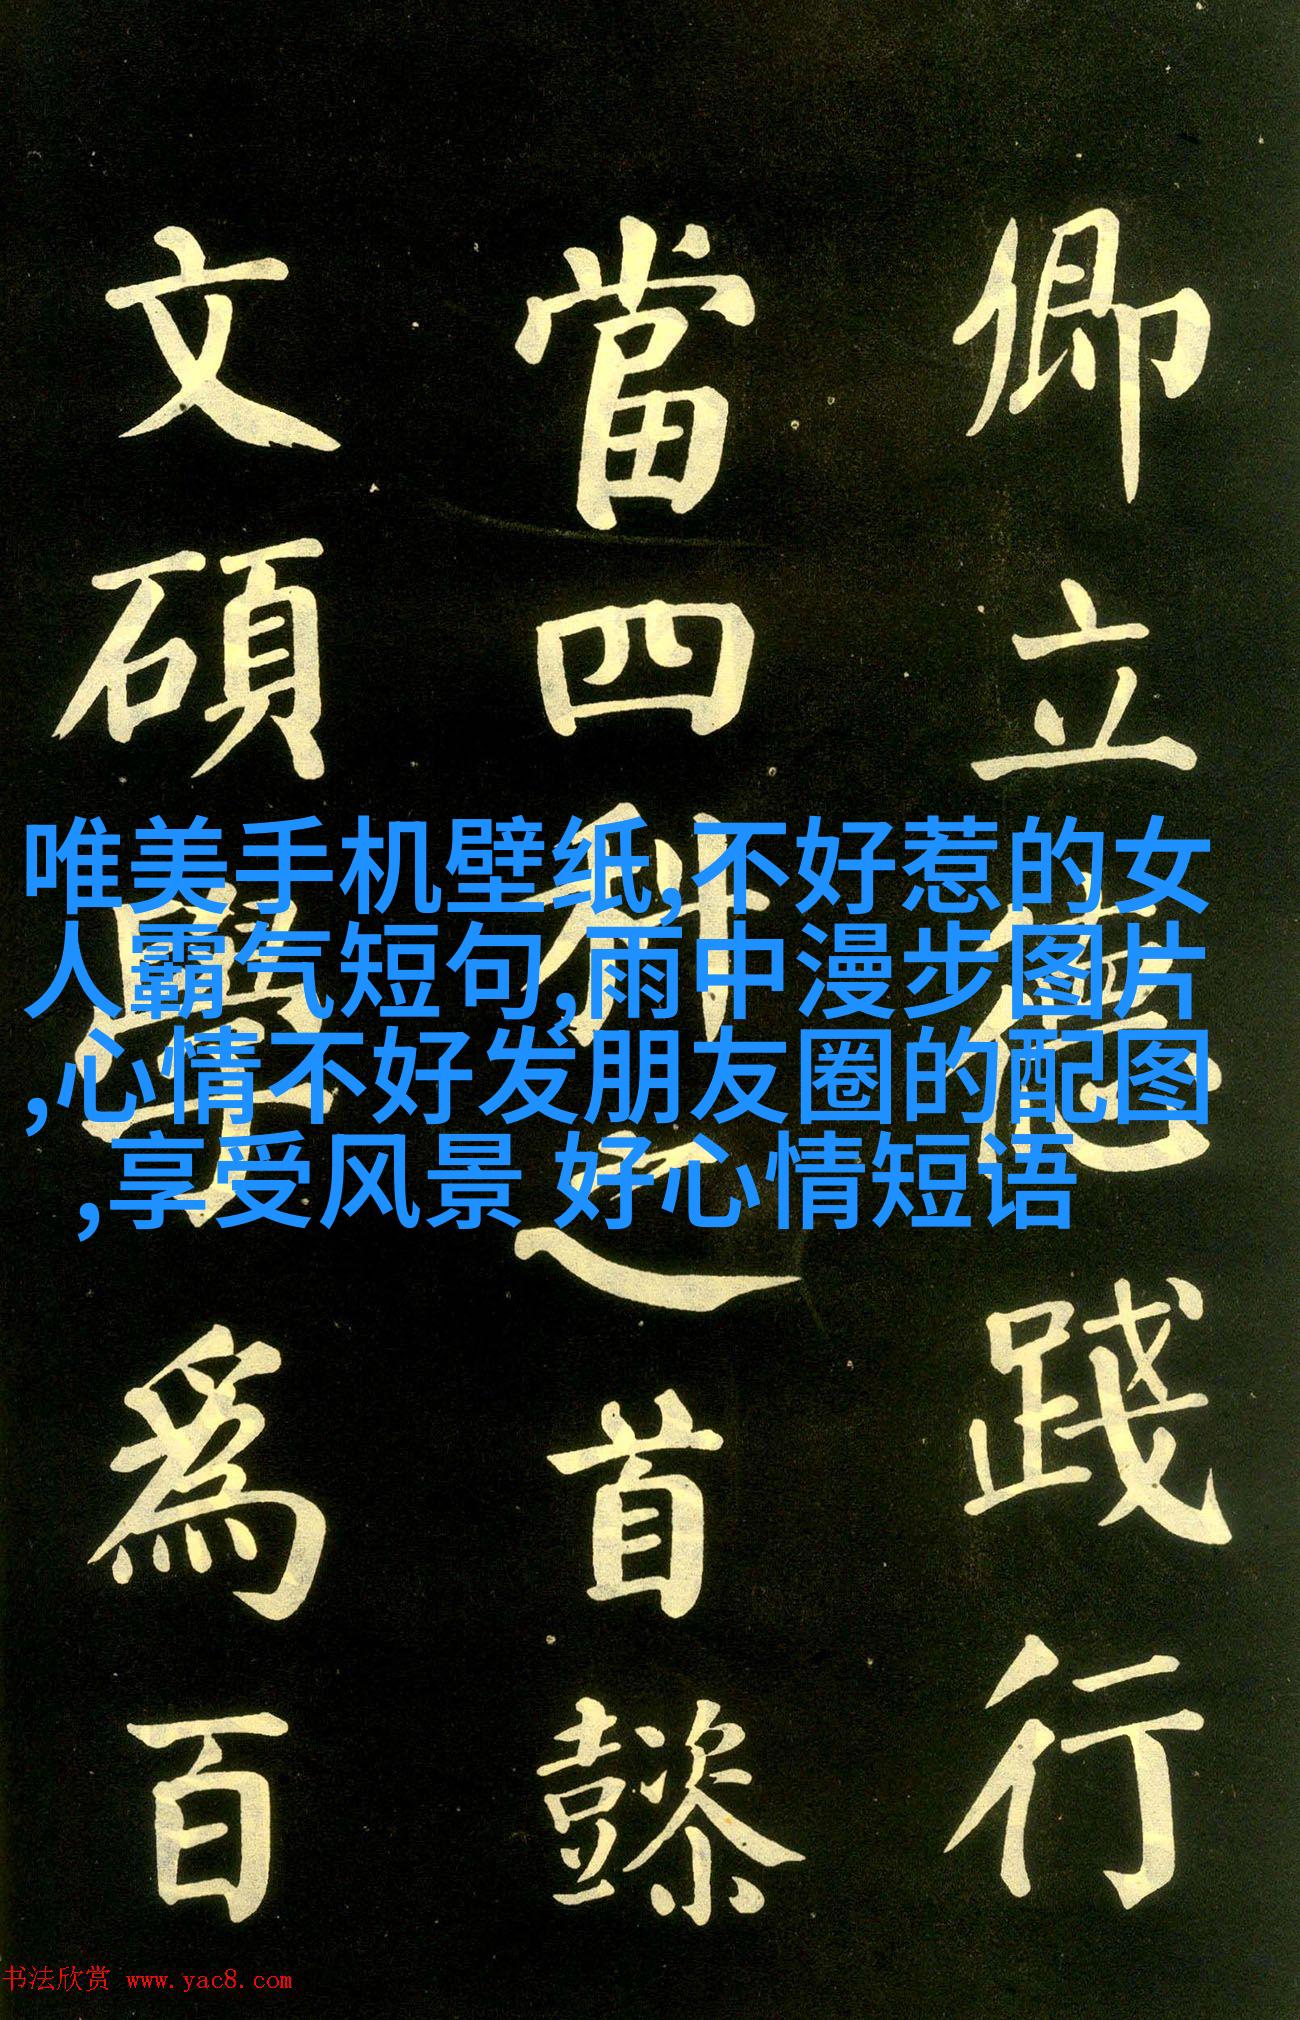 卿立德踐行
當四科之首懿
文碩學為百
唯美手机壁纸,不好惹的女
人霸气短句,雨中漫步图片
,心情不好发朋友圈的配图
,享受风景 好心情短语
书法欣赏 www.yac8.com